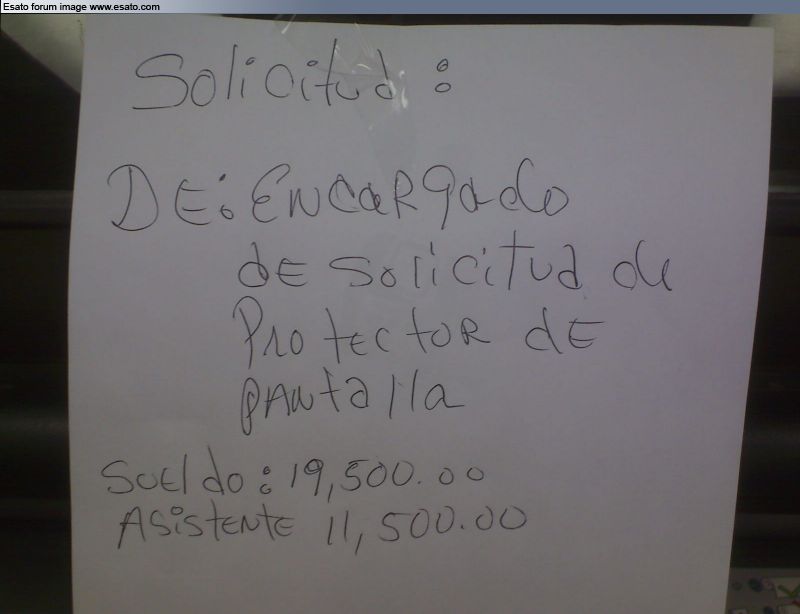 Esato forum image www.esato.com
Solicitud :
DE: ENCARgado
dE solicitud de
Protector dE
pantalla
Sueldo : 19,500.00
Asistente 11,500.00